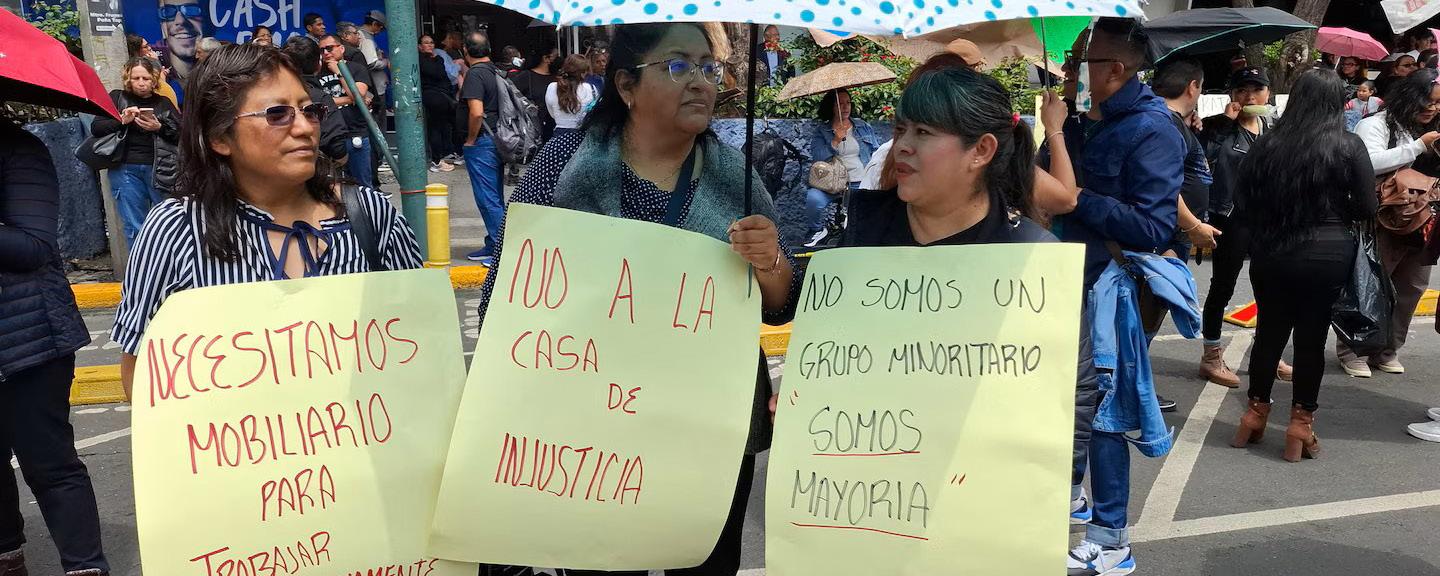 CASH
NECESITAMOS
MOBILIARIO
PARA
TRABAJAR
NO A LA
CASA
DE
INJUSTICIA
NO SOMOS UN
GRUPO MINORITARIO
"SOMOS
MAYORIA"